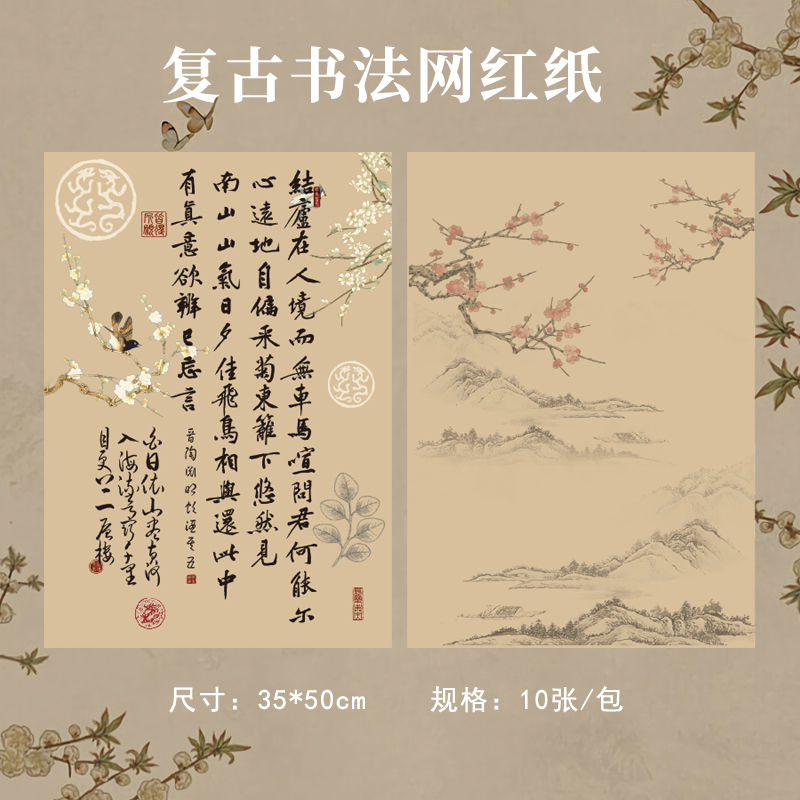 复古书法网红纸
結廬在人境而無車馬喧問君何能尔
心遠地自偏采菊東籬下悠然見
南山山氣日夕佳飛鳥相與還此中
有真意欲辨已忘言
晋陶渊明饮酒其五
白日依山尽黄河
入海流欲窮千里
目更上一层楼
尺寸：35*50cm 规格：10张/包